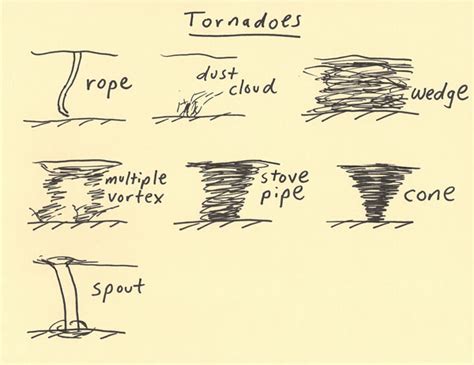 Tornadoes
rope
dust
cloud
wedge
multiple
vortex
stove
pipe
cone
spout